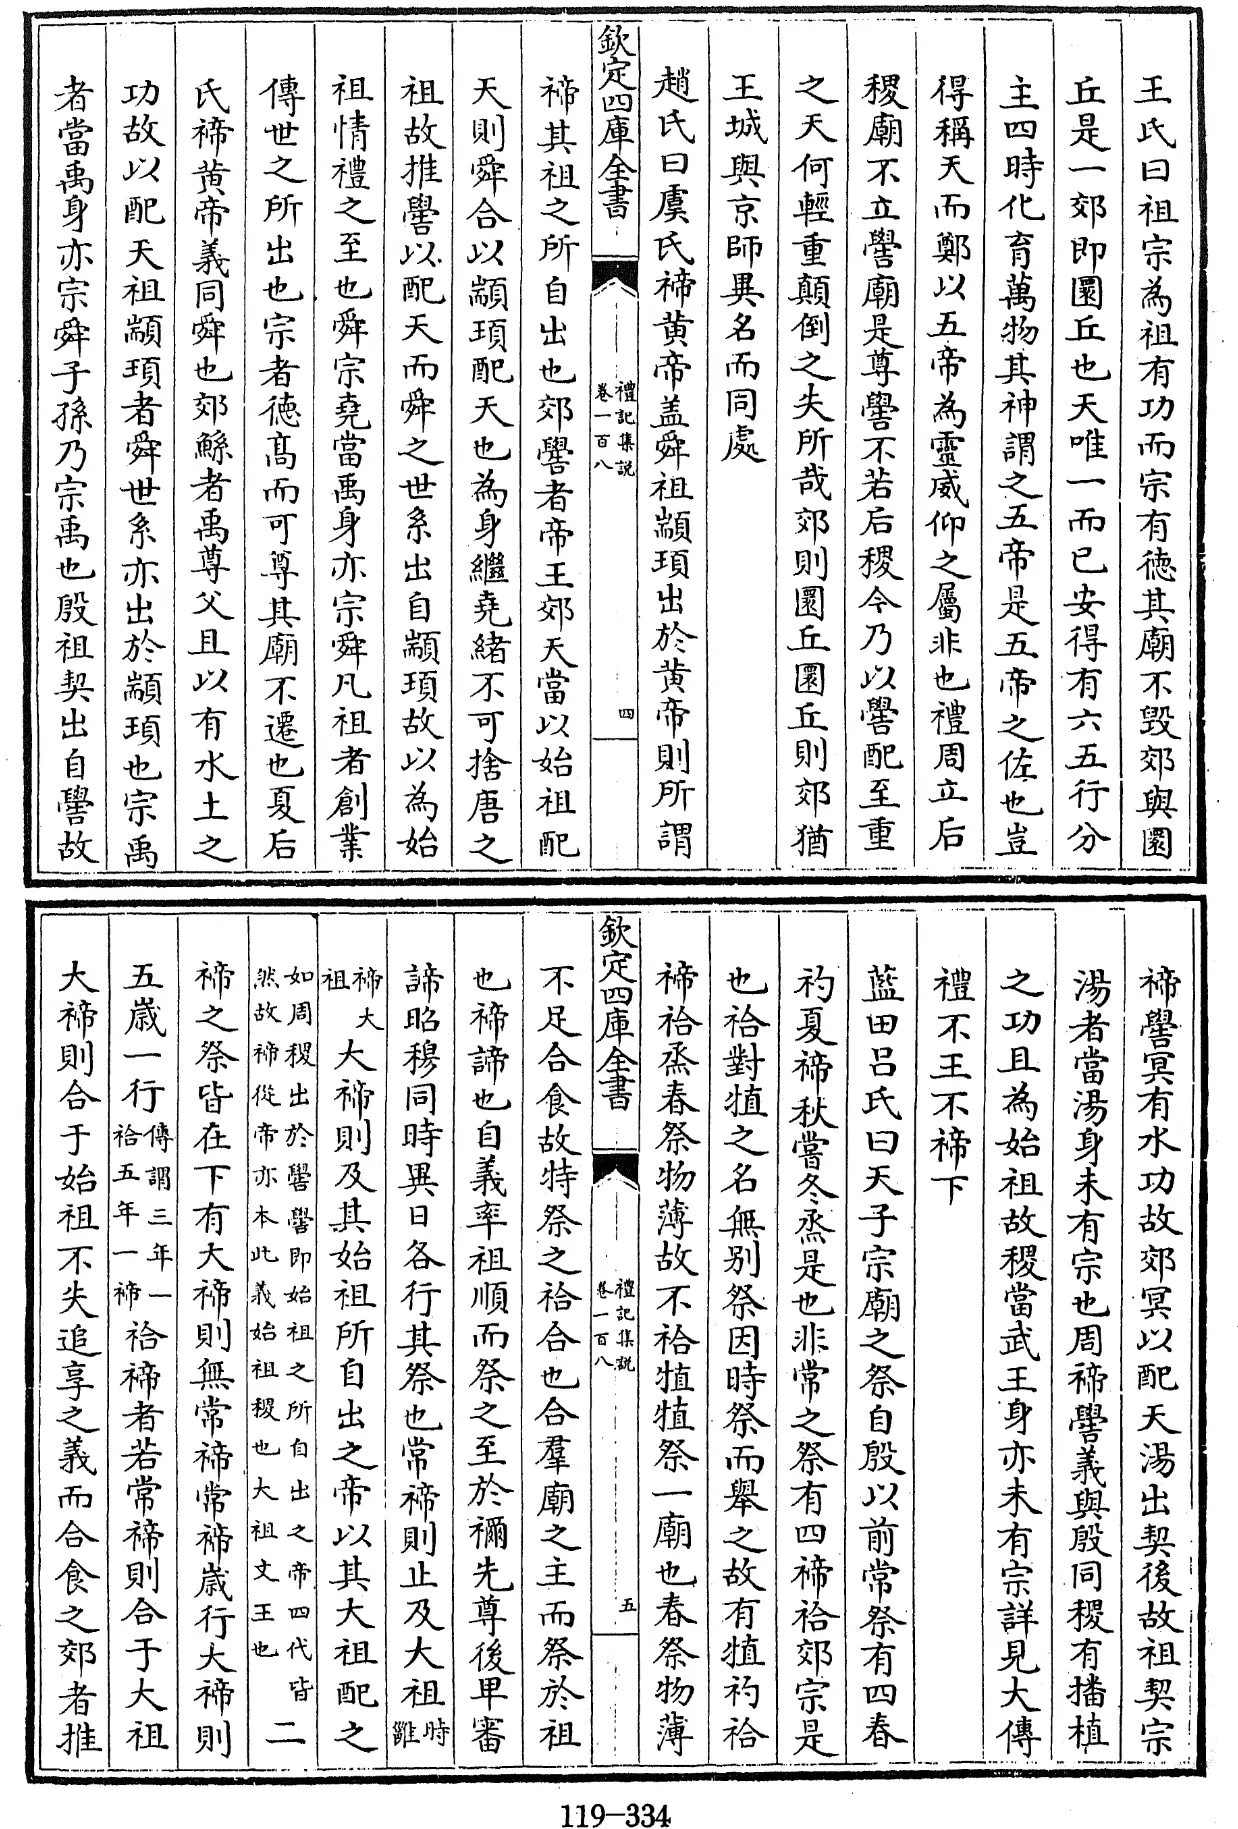 王氏曰祖宗為祖有功而宗有徳其廟不毀郊與圜
丘是一郊即圜丘也天唯一而已安得有六五行分
主四時化育萬物其神謂之五帝是五帝之佐也豈
得稱天而鄭以五帝為靈威仰之屬非也禮周立后
稷廟不立嚳廟是尊嚳不若后稷今乃以嚳配至重
之天何輕重顛倒之失所哉郊則圜丘圜丘則郊猶
王城與京師異名而同處
趙氏曰虞氏禘黄帝盖舜祖顓頊出於黄帝則所謂
欽定四庫全書
禮記集說
卷一百八
四
禘其祖之所自出也郊嚳者帝王郊天當以始祖配
天則舜合以顓頊配天也為身繼堯緒不可捨唐之
祖故推嚳以配天而舜之世系出自顓頊故以為始
祖情禮之至也舜宗堯當禹身亦宗舜凡祖者創業
傳世之所出也宗者徳髙而可尊其廟不遷也夏后
氏禘黄帝義同舜也郊鯀者禹尊父且以有水土之
功故以配天祖顓頊者舜世系亦出於顓頊也宗禹
者當禹身亦宗舜子孫乃宗禹也殷祖契出自嚳故
禘嚳冥有水功故郊冥以配天湯出契後故祖契宗
湯者當湯身未有宗也周禘嚳義與殷同稷有播植
之功且為始祖故稷當武王身亦未有宗詳見大傳
禮不王不禘下
藍田吕氏曰天子宗廟之祭自殷以前常祭有四春
礿夏禘秋嘗冬烝是也非常之祭有四禘祫郊宗是
也祫對犆之名無别祭因時祭而舉之故有犆礿祫
禘祫烝春祭物薄故不祫犆犆祭一廟也春祭物薄
欽定四庫全書
禮記集說
卷一百八
五
不足合食故特祭之祫合也合羣廟之主而祭於祖
也禘諦也自義率祖順而祭之至於禰先尊後卑審
諦昭穆同時異日各行其祭也常禘則止及大祖時雝
禘大祖大禘則及其始祖所自出之帝以其大祖配之
如周稷出於嚳嚳即始祖之所自出之帝四代皆
然故禘從帝亦本此義始祖稷也大祖文王也二
禘之祭皆在下有大禘則無常禘常禘歲行大禘則
五歲一行傳謂三年一祫五年一禘祫禘者若常禘則合于大祖
大禘則合于始祖不失追享之義而合食之郊者推
119-334